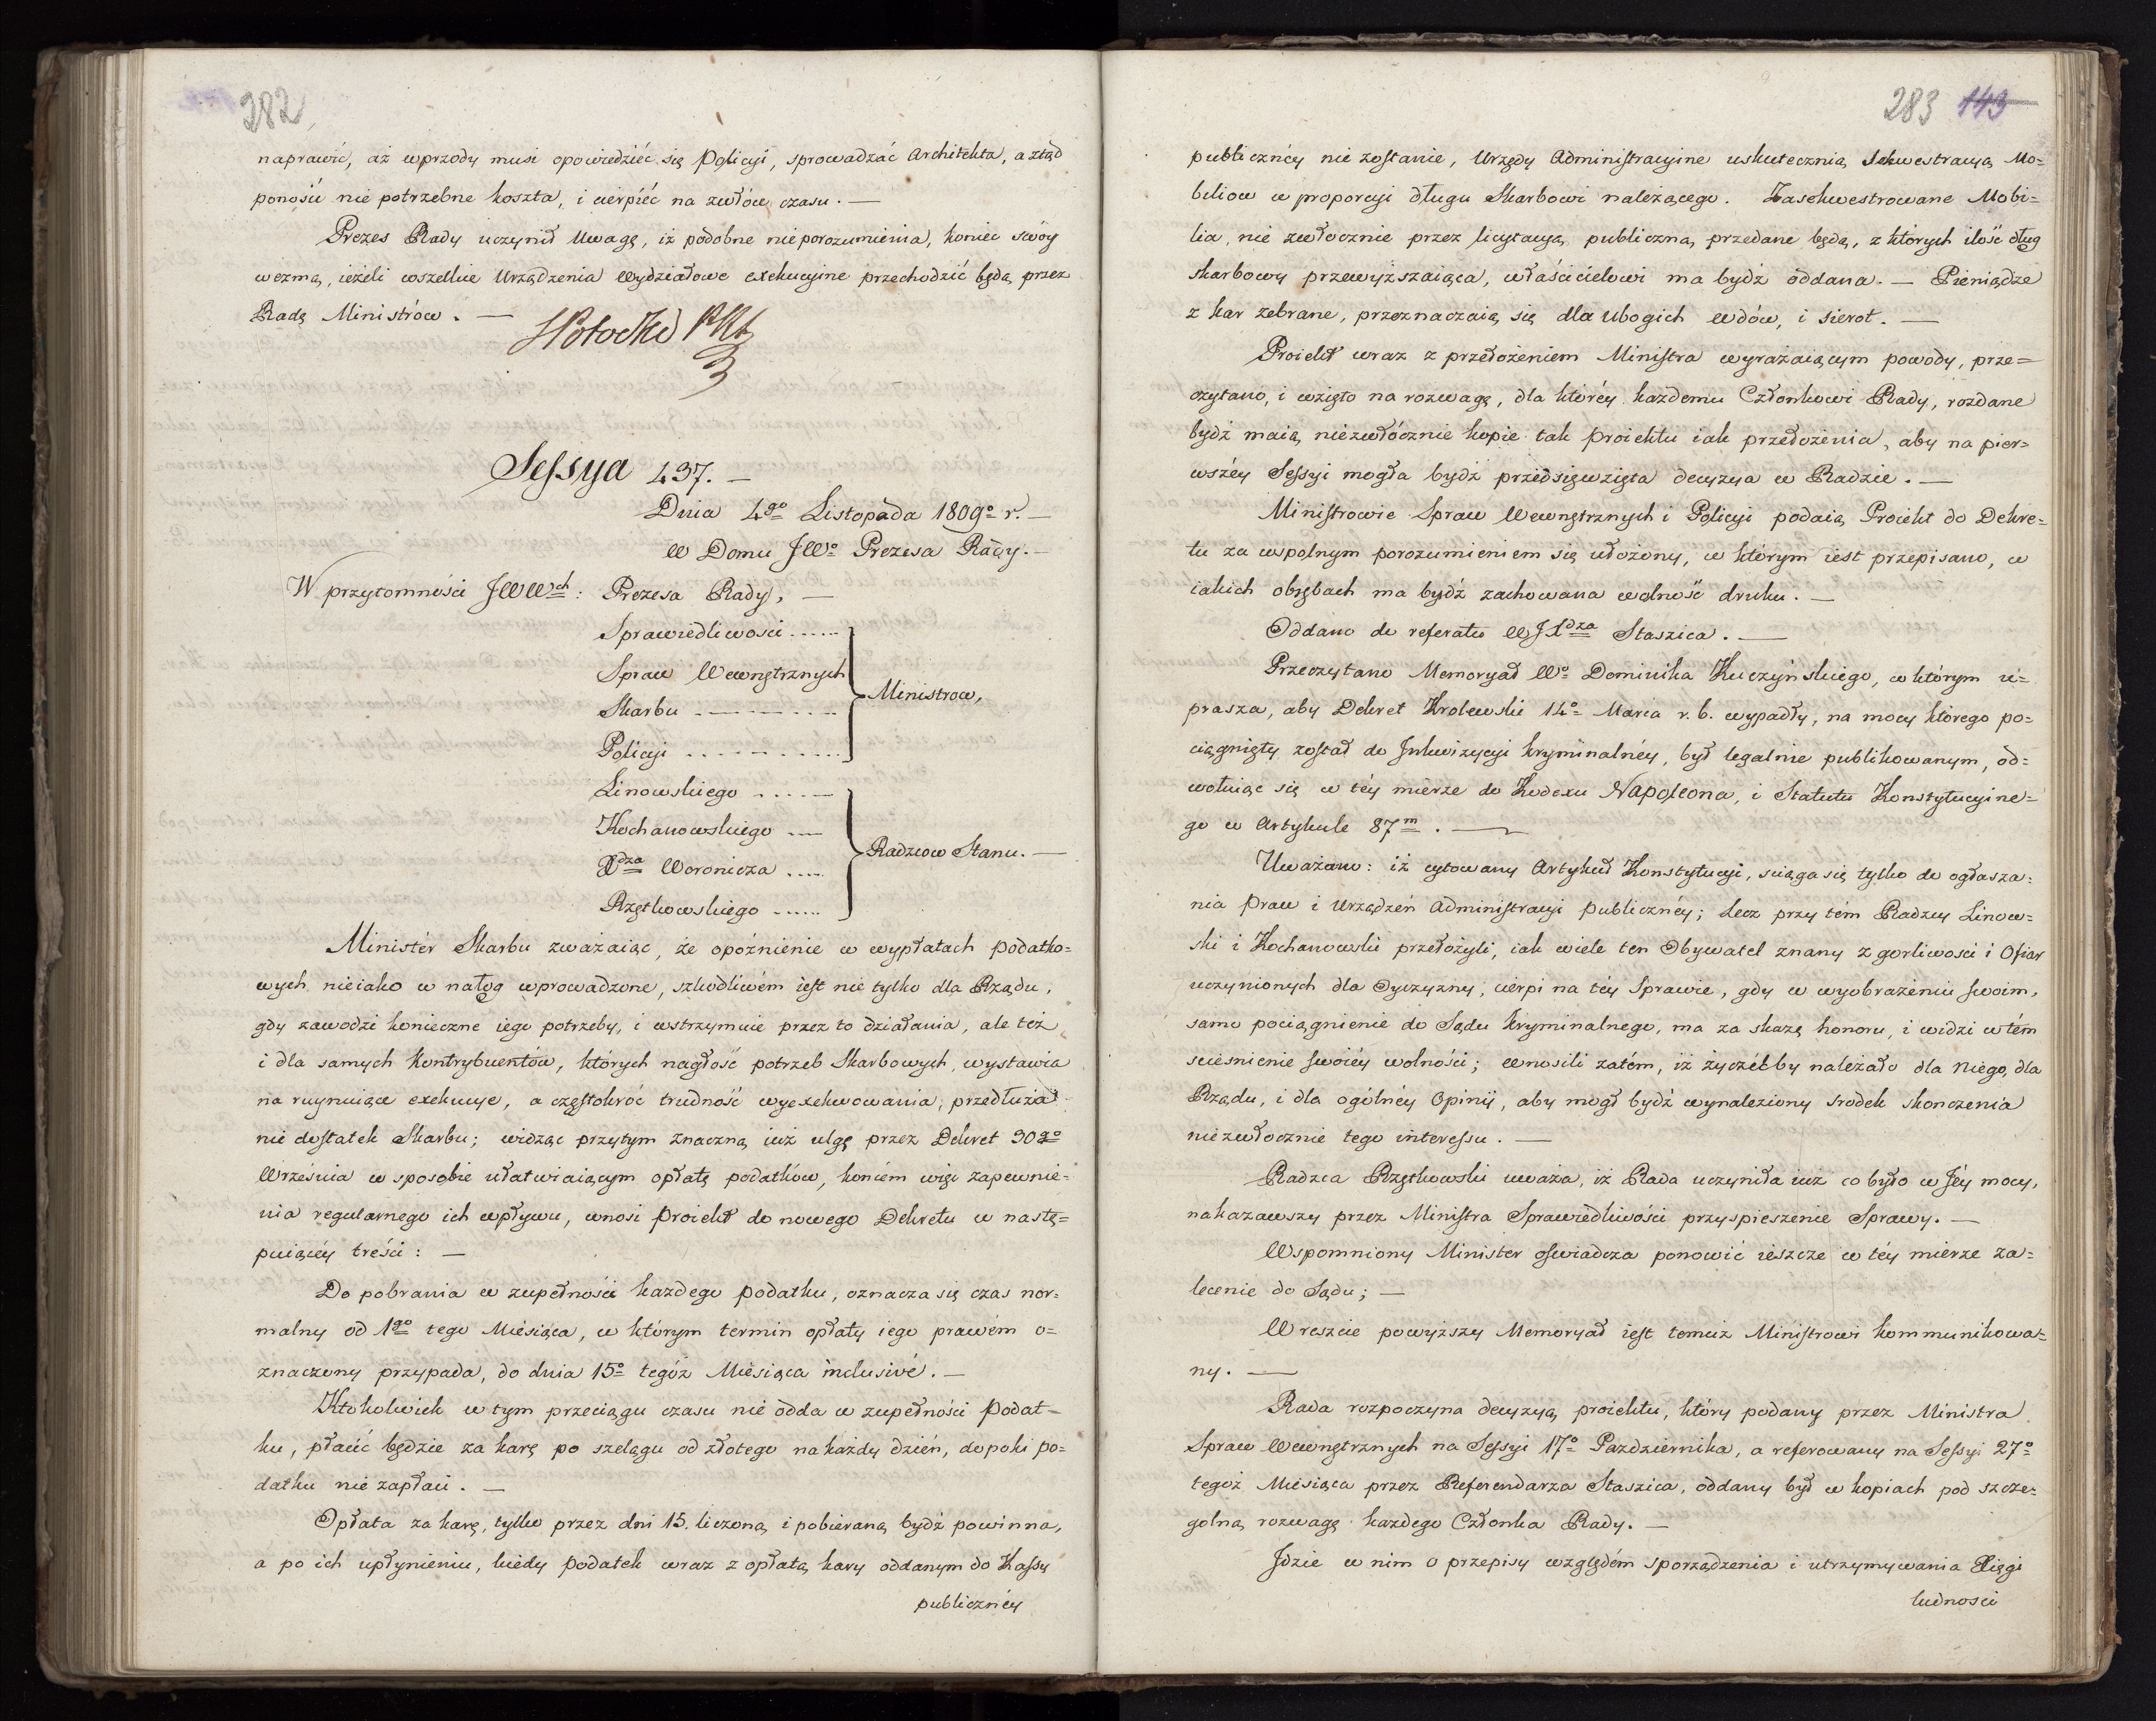 282
naprawić, aż wprzody musi opowiedzieć się Policyi, sprowadzać Architekta, a ztąd
ponosić nie potrzebne koszta, i cierpiéć na zwłóce czasu. —
Prezes Rady uczynił Uwagę, iż podobne nieporozumienia, koniec swóy
wezmą, ieżeli wszelkie Urządzenia Wydziałowe exekucyine przechodzić będą przez
Radę Ministrów. —
Sessya 437. —
Dnia 4go Listopada 1809o r. —
w Domu JWo Prezesa Rady. —
W przytomności JWWch: Prezesa Rady, —
Sprawiedliwości ......
Spraw Wewnętrznych
Skarbu ..........
Policyi ..........
Ministrow,
Linowskiego ......
Kochanowskiego ....
Xdza Woronicza ....
Rzętkowskiego ......
Radzcow Stanu. —
Ministér Skarbu zważaiąc, że opóźnienie w wypłatach podatko=
wych nieiako w nałog wprowadzone, szkodliwém iest nie tylko dla Rządu,
gdy zawodzi konieczne iego potrzeby, i wstrzymuie przez to działania, ale też
i dla samych Kontrybuentów, których nagłość potrzeb Skarbowych, wystawia
na ruynuiące exekucye, a częstokróć trudność wyexekwowania, przedłuża
nie dostatek Skarbu; widząc przytym znaczną iuż ulgę przez Dekret 30go
Września w sposobie ułatwiaiącym opłatę podatków, końcem więc zapewnie=
nia regularnego ich wpływu, wnosi Proiekt do nowego Dekretu w nastę=
puiącéy treści: —
Do pobrania w zupełności każdego podatku, oznacza się czas nor=
malny od 1go tego Miesiąca, w którym termin opłaty iego prawém o=
znaczony przypada, do dnia 15o tegóż Miesiąca inclusivé. —
Ktokolwiek w tym przeciągu czasu nie odda w zupełności Podat=
ku, płacić będzie za karę po szelągu od złotego na każdy dzień, dopoki po=
datku nie zapłaci. —
Opłata za karę, tylko przez dni 15. liczoną i pobieraną bydź powinna,
a po ich upłynieniu, kiedy Podatek wraz z opłatą kary oddanym do Kassy
publicznéy
283 143
publicznéy nie zostanie, Urzędy Administracyine uskutecznią Sekwestracyą Mo=
bilιow w proporcyi długu Skarbowi należącego. Zasekwestrowane Mobi=
lia, nie zwłocznie przez licytacyą publiczną przedane będą, z których ilość dług
skarbowy przewyższaiąca, właścicielowi ma bydź oddana. — Pieniądze
z kar zebrane, przeznaczaią się dla Ubogich wdów, i sierot. —
Proiekt wraz z przełożeniem Ministra wyrażaiącym powody, prze=
czytano, i wzięto na rozwagę, dla któréy każdemu Członkowi Rady, rozdane
bydź maią niezwłócznie kopie tak Proiektu iak przełożenia, aby na pier=
wszéy Sessyi mogła bydź przedsięwzięta decyzya w Radzie. —
Ministrowie Spraw Wewnętrznych i Policyi podaią Proiekt do Dekre=
tu za wspolnym porozumieniem się ułożony, w którym iest przepisano, w
iakich obrębach ma bydź zachowana wolność druku. —
Oddano do referatu WJXdza Staszica. —
Przeczytano Memoryał Wo Dominika Kuczyńskiego, w którym u=
prasza, aby Dekret Krolewski 14o Marca r. b. wypadły, na mocy którego po=
ciągnięty został do Inkwizycyi kryminalnéy, był legalnie publikowanym, od=
wołuiąc się w téy mierze do Kodexu Napoleona, i Statutu Konstytucyine=
go w Artykule 87m. —
Uważano: iż cytowany Artykuł Konstytucyi, sciąga się tylko do ogłasza=
nia Praw i Urządzeń Administracyi Publicznéy; Lecz przy tém Radzcy Linow=
ski i Kochanowski przełożyli, iak wiele ten Obywatel znany z gorliwosci i Ofiar
uczynionych dla Oyczyzny, cierpi na téy Sprawie, gdy w wyobrażeniu swoim,
samo pociągnienie do Sądu Kryminalnego, ma za skazę honoru, i widzi w tém
scieśnienie swoiéy wolności; wnosili zatém, iż życzéćby należało dla niego, dla
Rządu, i dla ogólnéy Opinii, aby mogł bydź wynaleziony srodek skonczenia
niezwłocznie tego interessu. —
Radzca Rzętkowski uważa, iż Rada uczyniła iuż co było w Jéy mocy,
nakazawszy przez Ministra Sprawiedliwości przyspieszenie Sprawy. —
Wspomniony Minister oświadcza ponowić ieszcze w téy mierze za=
lecenie do Sądu; —
Wreszcie powyższy Memoryał iest temuż Ministrowi kommunikowa=
ny. —
Rada rozpoczyna decyzyą proiektu, który podany przez Ministra
Spraw Wewnętrznych na Sessyi 17o Pazdziernika, a referowany na Sessyi 27o
tegoż Miesiąca przez Referendarza Staszica, oddany był w kopiach pod szcze=
golną rozwagę każdego Członka Rady. —
Jdzie w nim o przepisy względém sporządzenia i utrzymywania Xięgi
ludnosci